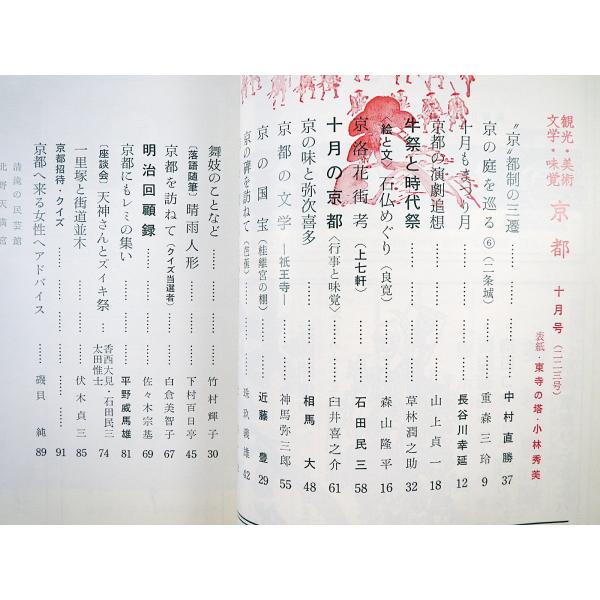 観光・美術
文学・味覚
京都 十月号 (一二三号)
表紙・東寺の塔・小林秀美
"京"都制の三遷………中村直勝 37
京の庭を巡る⑥(二条城)………重森三玲 9
十月もまつり月………長谷川幸延 12
京都の演劇追想………山上貞一 18
牛祭と時代祭………草林潤之助 32
〈絵と文〉石仏めぐり(良寛)………森山隆平 16
京洛花街考(上七軒)………石田民三 58
十月の京都〈行事と味覚〉………臼井喜之介 61
京の味と弥次喜多………相馬大 48
京都の文学―祇王寺―………神馬弥三郎 55
京の国宝(桂離宮の棚)………近藤豊 29
京の碑を訪ねて(芭蕉)………珠玖義雄 42
舞妓のことなど………竹村輝子 30
〔落語随筆〕晴雨人形………下村百日亭 45
京都を訪ねて(クイズ当選者)………白倉美智子 67
明治回顧録………佐々木宗基 69
京都にもレミの集い………平野威馬雄 81
〔座談会〕天神さんとズイキ祭………香西大見・石田民三 太田惟士 74
一里塚と街道並木………伏木貞三 85
京都招待・クイズ………91
京都へ来る女性へアドバイス………磯貝純 89
清流の民芸館
北野天満宮